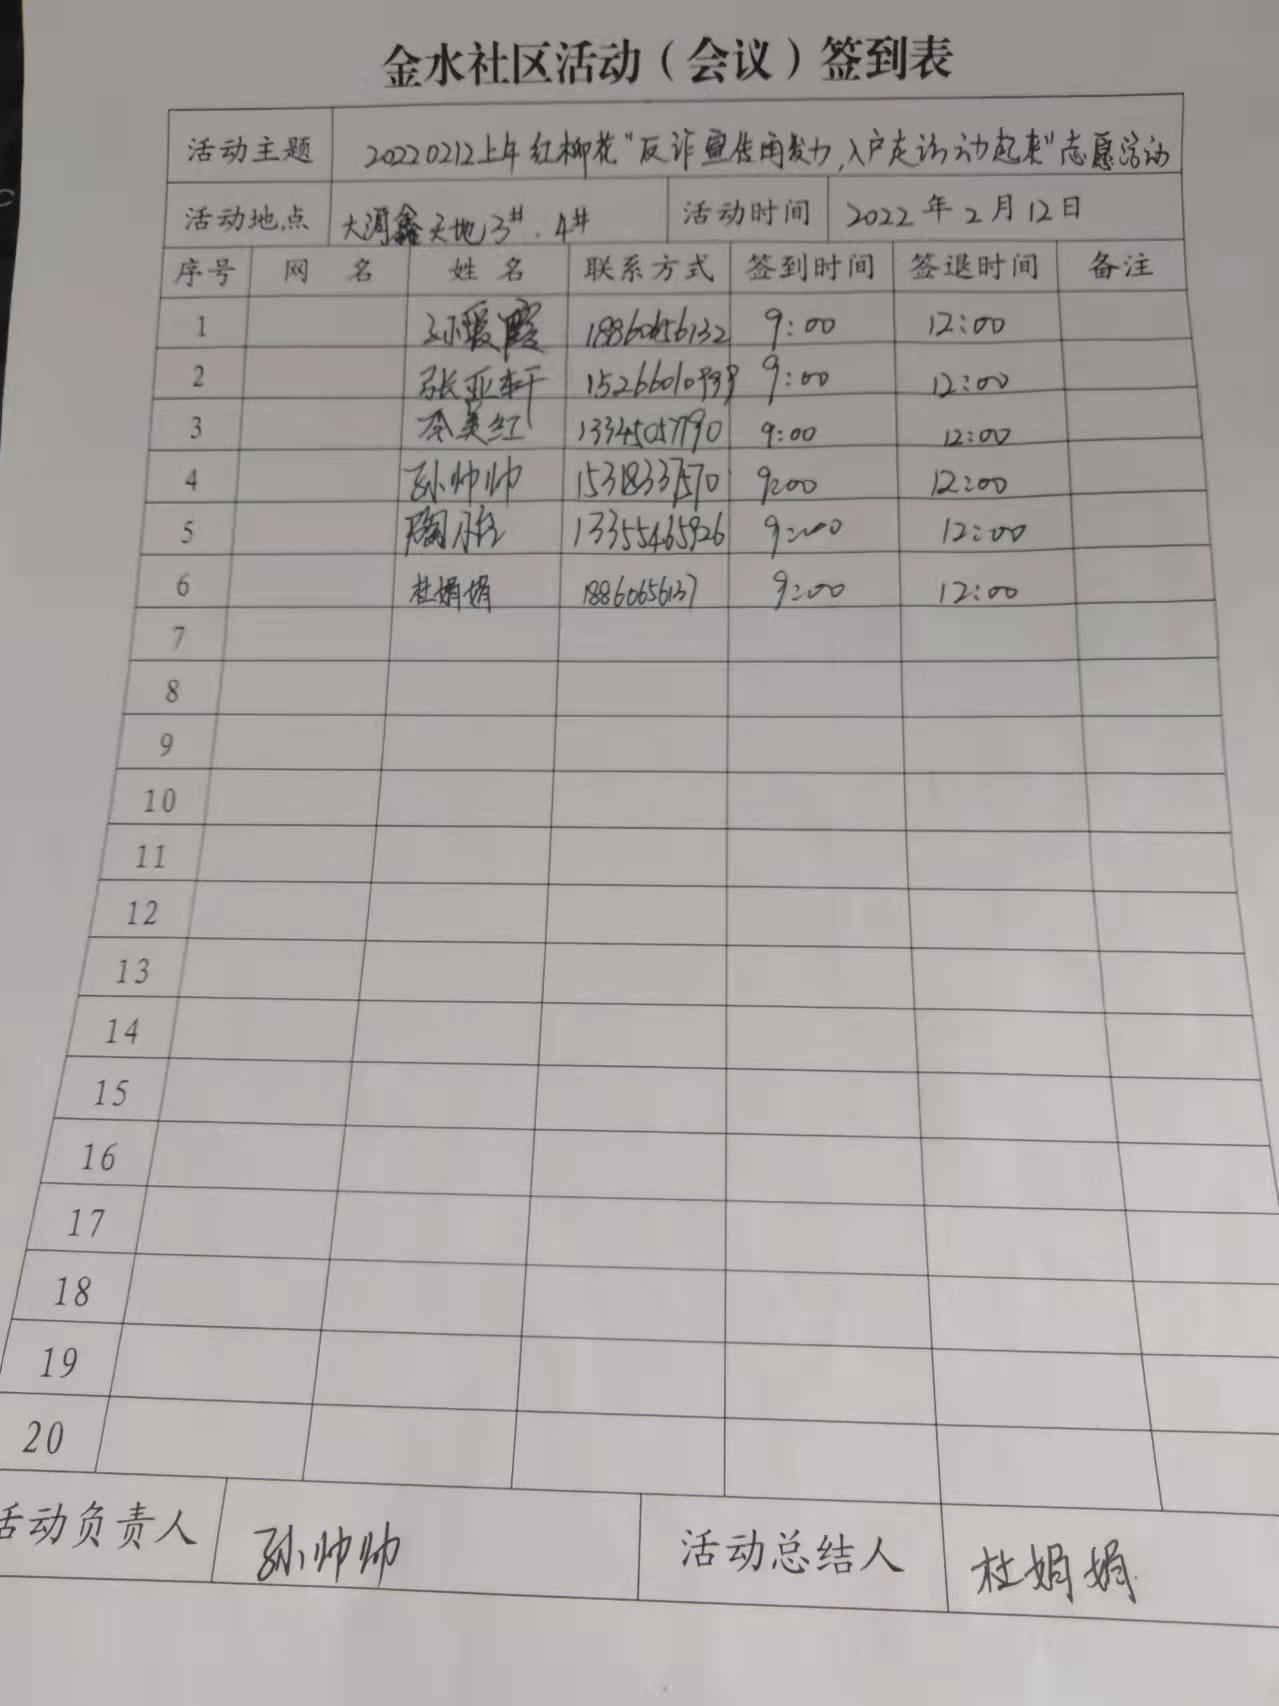 金水社区活动（会议）签到表
活动主题 20220212上午红柳花“反诈宣传再发力,入户走访动起来”志愿活动
活动地点 大润鑫天地3#.4# 活动时间 2022年2月12日
序号 网名 姓名 联系方式 签到时间 签退时间 备注
1 孙爱霞 18860656132 9:00 12:00
2 张亚轩 9:00 12:00
3 李美红 13345057790 9:00 12:00
4 孙帅帅 15318337570 9:00 12:00
5 陶 13355465926 9:00 12:00
6 杜娟娟 18860656137 9:00 12:00
7
8
9
10
11
12
13
14
15
16
17
18
19
20
活动负责人 孙帅帅 活动总结人 杜娟娟